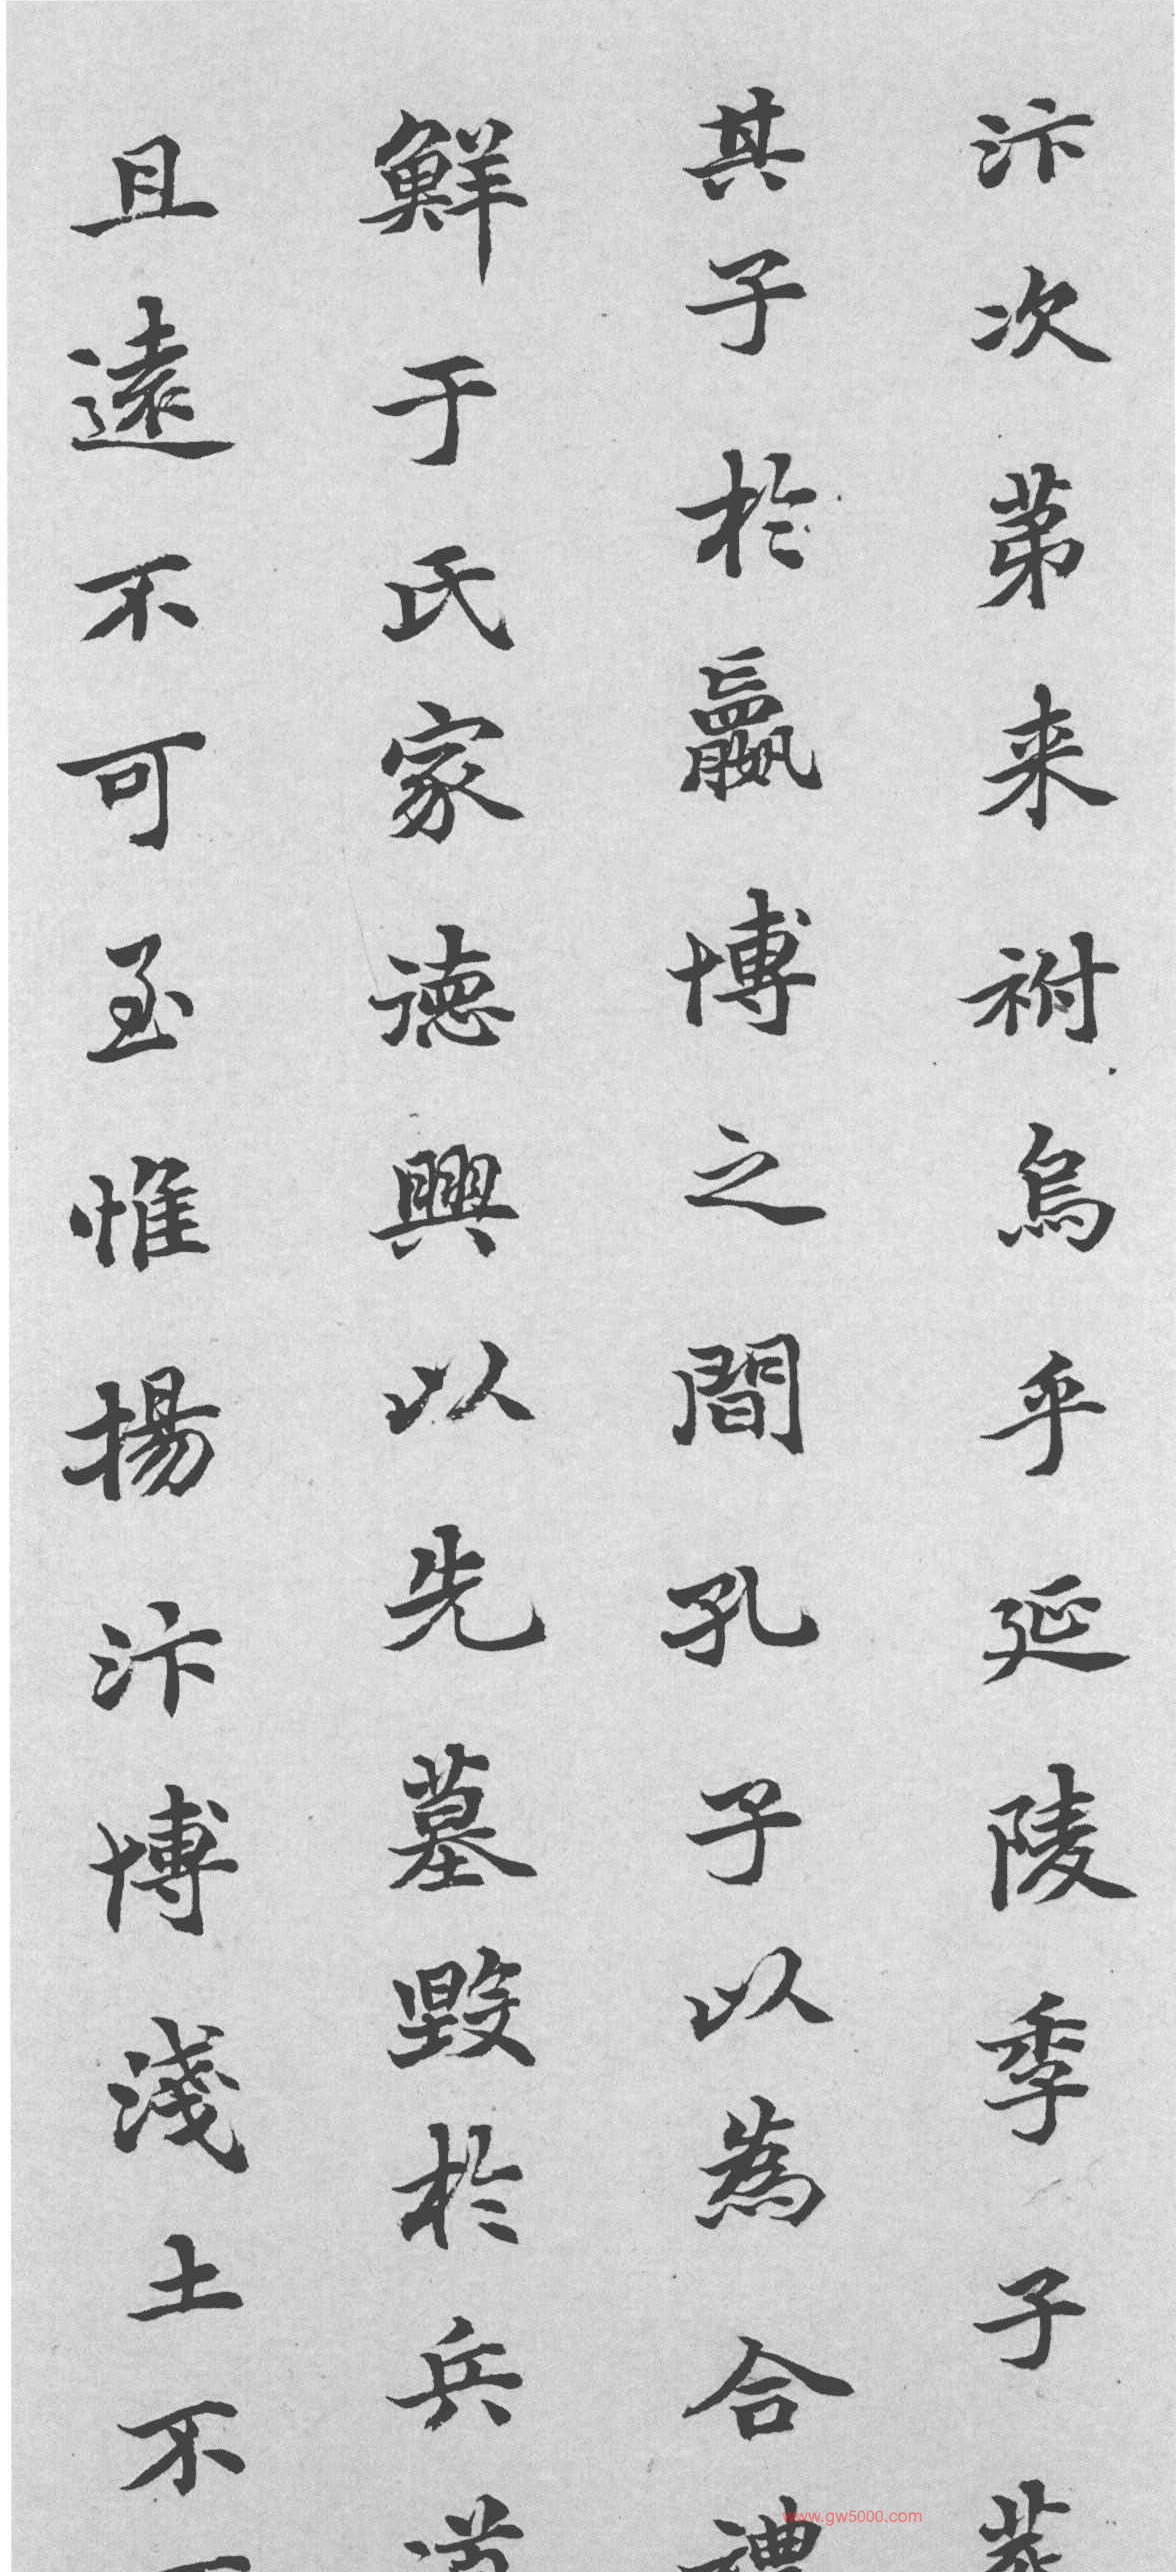 汴次第来祔烏乎延陵季子葬
其子於嬴博之間孔子以為合禮
鮮于氏家德興以先墓毀於兵道
且遠不可至惟揚汴博淺土不
www.gw5000.com